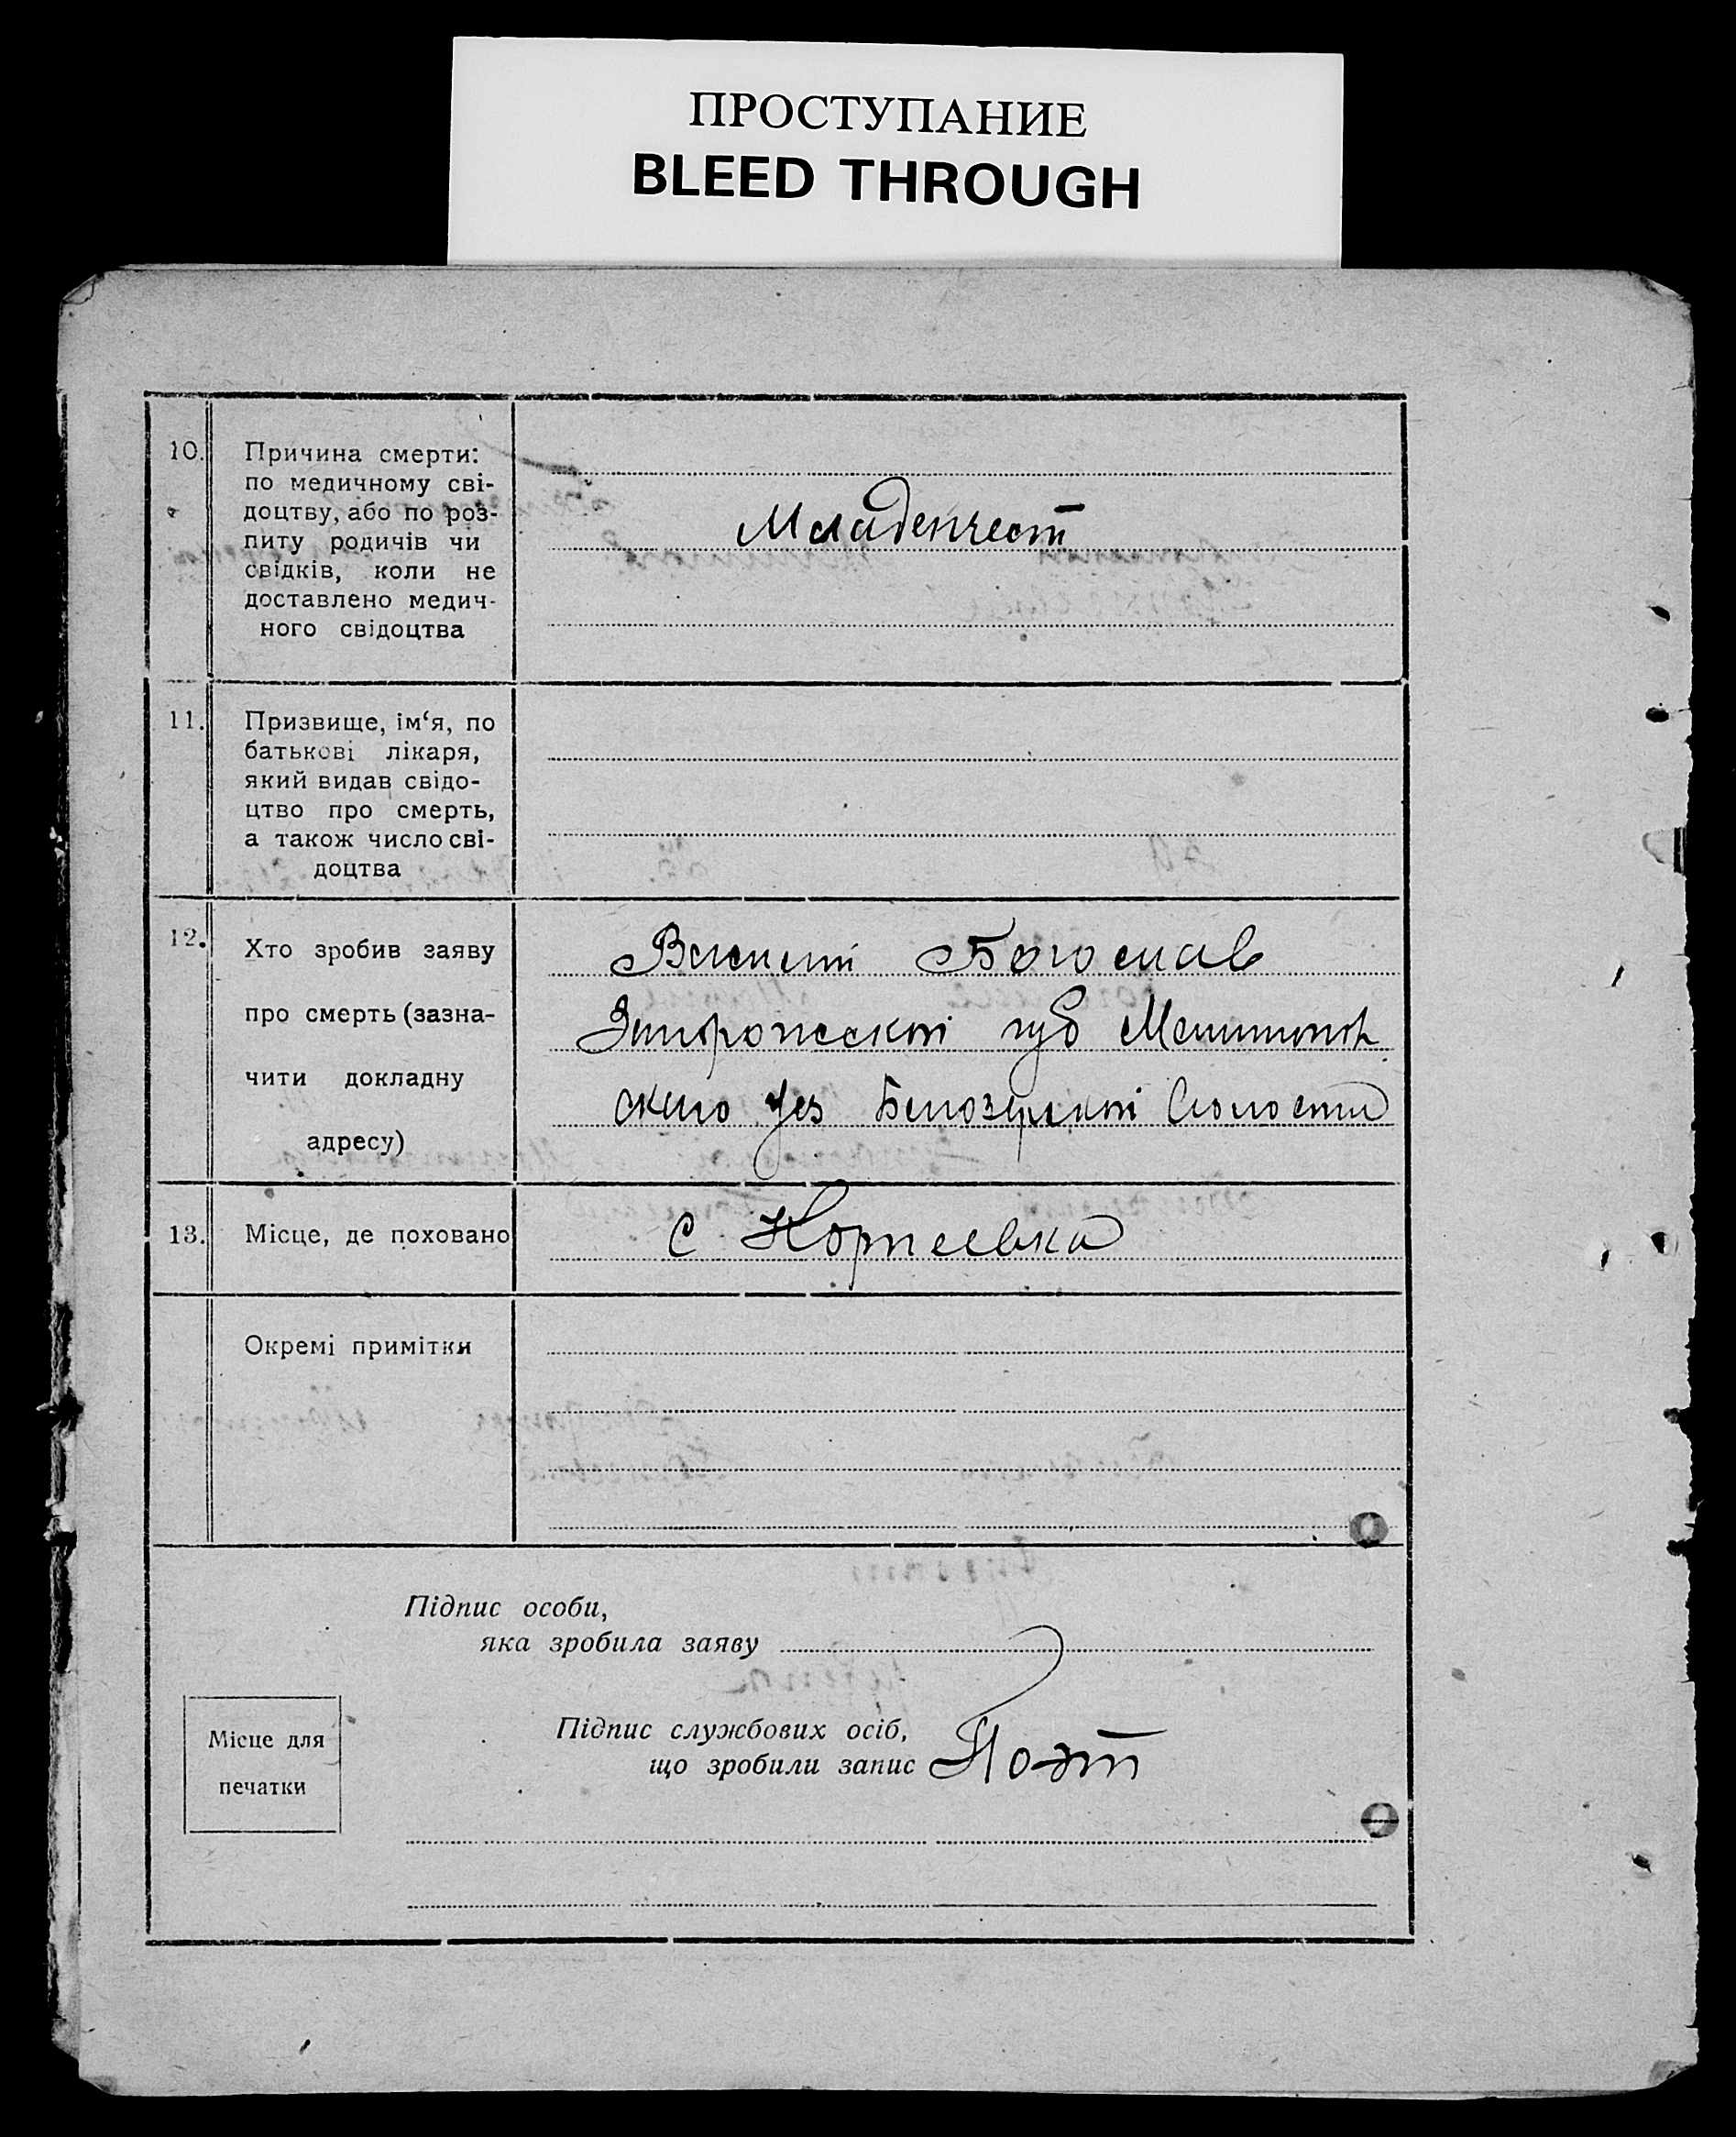 ПРОСТУПАНИЕ
BLEED THROUGH
10. Причина смерти:
по медичному сві-
доцтву, або по роз-
питу родичів чи
свідків, коли не
доставлено медич-
ного свідоцтва
Младенчест
11. Призвище, ім‘я, по
батькові лікаря,
який видав свідо-
цтво про смерть,
а також число сві-
доцтва
12. Хто зробив заяву
про смерть (зазна-
чити докладну
адресу)
Богослав
губ
ского уез
13. Місце, де поховано
с Корнеевка
Окремі примітки
Підпис особи,
яка зробила заяву
Місце для
печатки
Підпис службових осіб,
що зробили запис